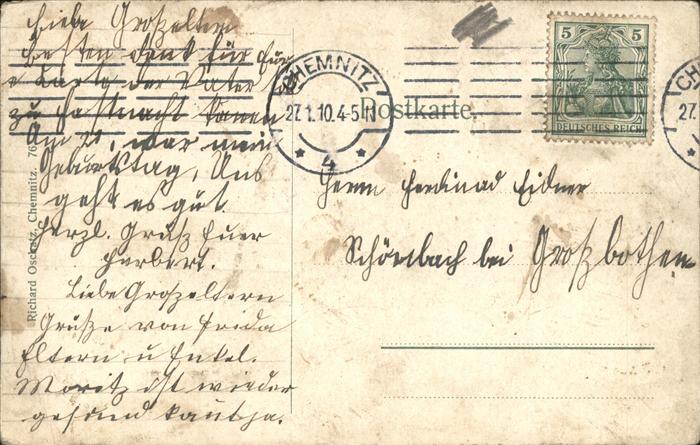 Liebe Großeltern
Besten Dank für Eure
Karte der Vater
zu Fastnacht
Am 21, war mein
Geburtstag, Uns
geht es gut.
Herzl. Gruß Euer
Herbert.
Liebe Großeltern
Grüße von Frida
Eltern u Enkel.
Moritz ist wieder
gesund
Richard Oschatz, Chemnitz.
CHEMNITZ
27.1.10.4-5N
4
Postkarte.
5 5
DEUTSCHES REICH
CH
27.
Herrn Ferdinad Eidner
Schönbach bei Großbothen